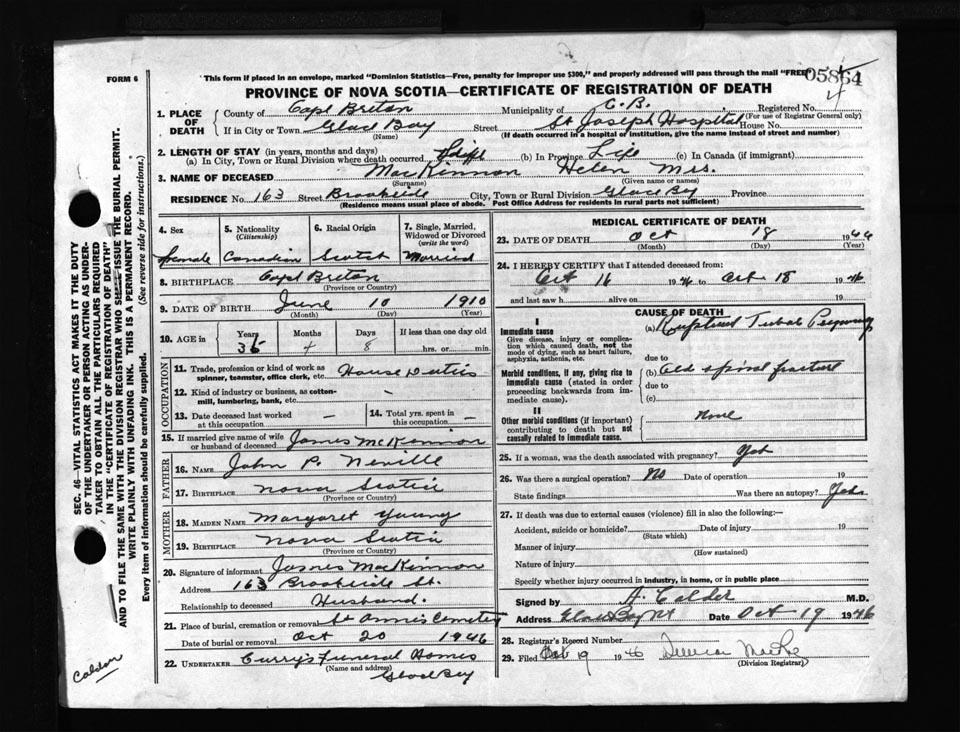 FORM 6
This form if placed in an envelope, marked "Dominion Statistics—Free, penalty for improper use $300," and properly addressed will pass through the mail "FREE"
PROVINCE OF NOVA SCOTIA—CERTIFICATE OF REGISTRATION OF DEATH
1. PLACE OF DEATH
County of Cape Breton Municipality of C.B. Registered No. 4
(For use of Registrar General only)
If in City or Town Glace Bay Street St Joseph Hospital House No.
(Name) (If death occurred in a hospital or institution, give the name instead of street and number)
2. LENGTH OF STAY (in years, months and days)
(a) In City, Town or Rural Division where death occurred Life (b) In Province Life (c) In Canada (if immigrant)
3. NAME OF DECEASED MacKinnon Helen Mrs.
(Surname) (Given name or names)
RESIDENCE No. 163 Street Brookside City, Town or Rural Division Glace Bay Province
(Residence means usual place of abode. Post Office Address for residents in rural parts not sufficient)
4. Sex
female
5. Nationality
(Citizenship)
Canadian
6. Racial Origin
Scotch
7. Single, Married, Widowed or Divorced
(write the word)
Married
8. BIRTHPLACE Cape Breton
(Province or Country)
9. DATE OF BIRTH June 10 1910
(Month) (Day) (Year)
10. AGE in
Years Months Days If less than one day old
36 4 8 hrs. or min.
OCCUPATION
11. Trade, profession or kind of work as spinner, teamster, office clerk, etc. House Duties
12. Kind of industry or business, as cotton-mill, lumbering, bank, etc. –
13. Date deceased last worked at this occupation –
14. Total yrs. spent in this occupation –
15. If married give name of wife or husband of deceased James McKinnon
FATHER
16. NAME John P. Neville
17. BIRTHPLACE Nova Scotia
(Province or Country)
MOTHER
18. MAIDEN NAME Margaret Young
19. BIRTHPLACE Nova Scotia
(Province or Country)
20. Signature of informant James MacKinnon
Address 163 Brookside St.
Relationship to deceased Husband.
21. Place of burial, cremation or removal St Annes Cemetery
Date of burial or removal Oct 20 1946
22. UNDERTAKER Curry's Funeral Homes
(Name and address)
Glace Bay
MEDICAL CERTIFICATE OF DEATH
23. DATE OF DEATH Oct 18 1946
(Month) (Day) (Year)
24. I HEREBY CERTIFY that I attended deceased from:
Oct 16 1946 to Oct 18 1946
and last saw h alive on 19
CAUSE OF DEATH
I
Immediate cause
Give disease, injury or complication which caused death, not the mode of dying, such as heart failure, asphyxia, asthenia, etc.
(a) Ruptured Tubal Pregnancy
due to
Morbid conditions, if any, giving rise to immediate cause (stated in order proceeding backwards from immediate cause).
(b) Old spinal fracture
due to
(c)
II
Other morbid conditions (if important) contributing to death but not causally related to immediate cause.
None
25. If a woman, was the death associated with pregnancy? Yes
26. Was there a surgical operation? No Date of operation 19
State findings Was there an autopsy?
27. If death was due to external causes (violence) fill in also the following:—
Accident, suicide or homicide? Date of injury 19
(State which)
Manner of injury
(How sustained)
Nature of injury
Specify whether injury occurred in industry, in home, or in public place
Signed by A. Calder M.D.
Address Glace Bay NS Date Oct 19 1946
28. Registrar's Record Number
29. Filed Oct 19 1946
(Division Registrar)
SEC. 46—VITAL STATISTICS ACT MAKES IT THE DUTY
OF THE UNDERTAKER OR PERSON ACTING AS UNDER-
TAKER TO OBTAIN ALL THE PARTICULARS REQUIRED
IN THE "CERTIFICATE OF REGISTRATION OF DEATH"
AND TO FILE THE SAME WITH THE DIVISION REGISTRAR WHO SHALL ISSUE THE BURIAL PERMIT.
WRITE PLAINLY WITH UNFADING INK. THIS IS A PERMANENT RECORD.
Every item of information should be carefully supplied. (See reverse side for instructions.)
Calder